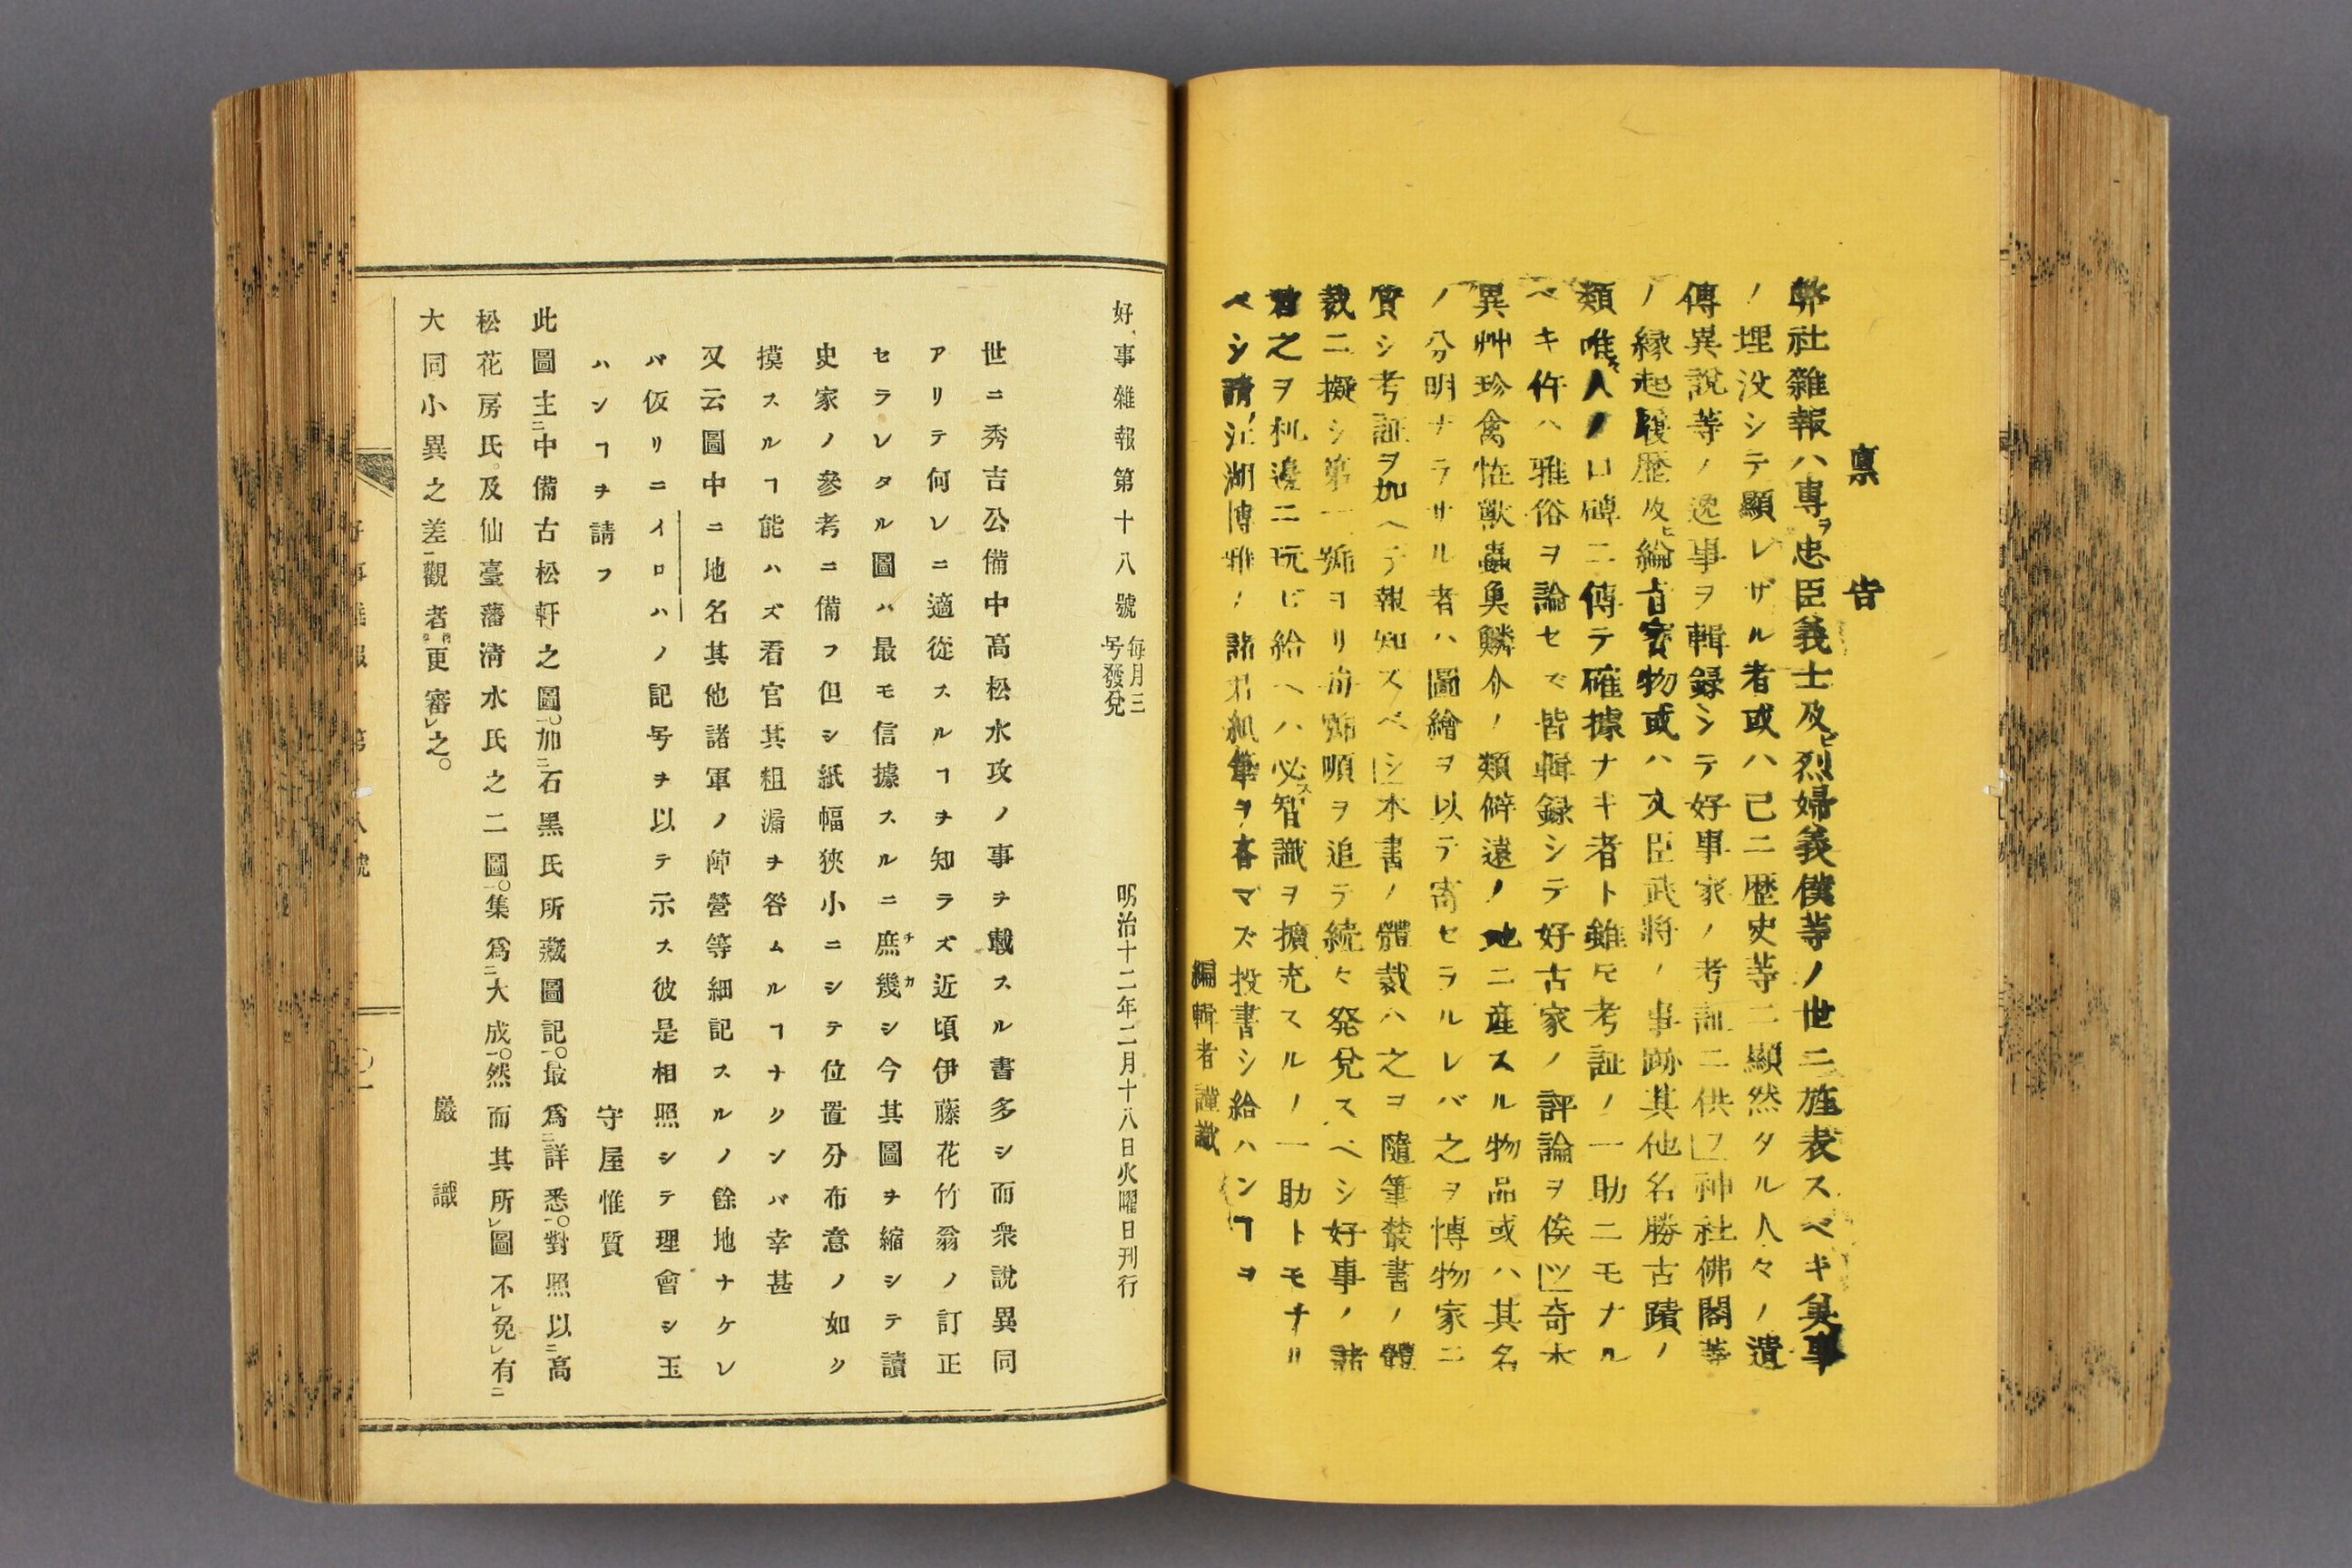 稟告
弊社雜報ハ專ヲ忠臣義士及ビ烈婦義僕等ノ世ニ旌表スベキ美事
ノ埋没シテ顯レザル者或ハ己ニ歴史等ニ顯然タル人々ノ遺
傳異說等ノ逸事ヲ輯録シテ好事家ノ考証ニ供フ神社佛閣等
ノ縁起履歴及ヒ綸旨宝物或ハ文臣武將ノ事跡其他名勝古蹟ノ
類唯人ノ口碑ニ傳テ確據ナキ者ト雖モ考証ノ一助ニモナル
ベキ件ハ雅俗ヲ論セズ皆輯録シテ好古家ノ評論ヲ俟ツ奇木
異艸珍禽怪獸蟲魚鱗介ノ類僻遠ノ地ニ産スル物品或ハ其名
ノ分明ナラサル者ハ圖繪ヲ以テ寄セラルレバ之ヲ博物家ニ
質シ考証ヲ加ヘテ報知スベシ本書ノ體裁ハ之ヲ隨筆叢書ノ體
裁ニ擬シ第一號ヨリ前號順ヲ追テ続々発兌スベシ好事ノ諸
君之ヲ机邊ニ玩ビ給ヘハ必ス智識ヲ擴充スルノ一助トモナル
ベシ請フ江湖博雅ノ諸君紙筆ヲ吝マズ投書シ給ハンヿヲ
編輯者謹識
好事雜報第十八號 每月三号發兌 明治十二年二月十八日火曜日刊行
世ニ秀吉公備中高松水攻ノ事ヲ載スル書多シ而衆說異同
アリテ何レニ適從スルヿヲ知ラズ近頃伊藤花竹翁ノ訂正
セラレタル圖ハ最モ信據スルニ庶幾チカシ今其圖ヲ縮シテ讀
史家ノ參考ニ備フ但シ紙幅狹小ニシテ位置分布意ノ如ク
摸スルヿ能ハズ看官其粗漏ヲ咎ムルヿナクンバ幸甚
又云圖中ニ地名其他諸軍ノ陣營等細記スルノ餘地ナケレ
バ仮リニイロハノ記号ヲ以テ示ス彼是相照シテ理會シ玉
ハンヿヲ請フ 守屋惟質
此圖主ニ中備古松軒之圖一。加ニ石黑氏所藏圖記一。最爲ニ詳悉一。對照以ニ高
松花房氏。及仙臺藩淸水氏之二圖一。集爲ニ大成一。然而其所レ圖不レ免レ有ニ
大同小異之差一觀者更審レ之。
嚴識